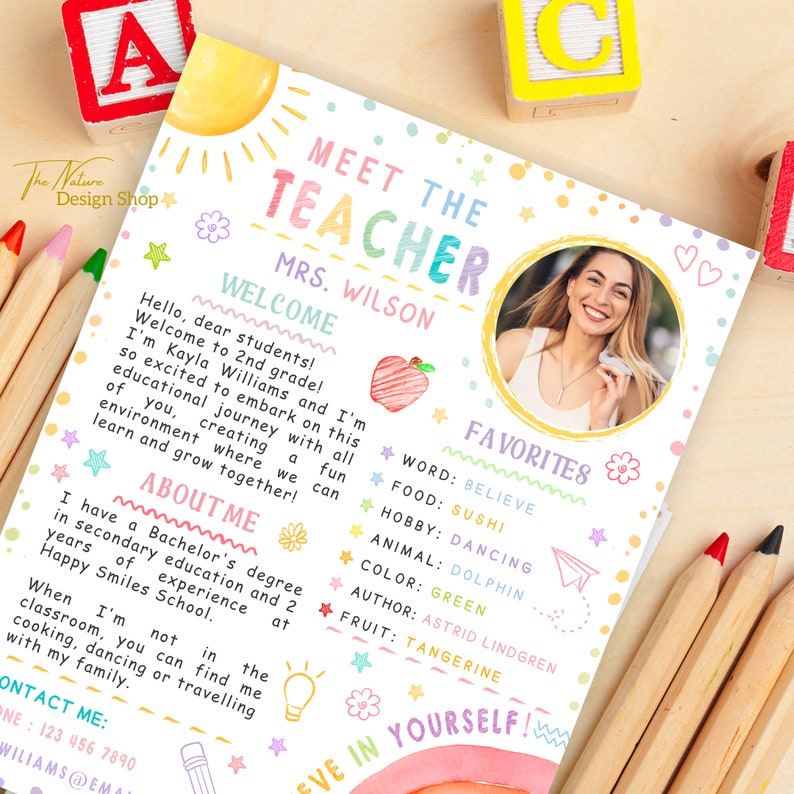 A
C
The Nature
Design Shop
MEET THE
TEACHER
MRS. WILSON
WELCOME
Hello, dear students!
Welcome to 2nd grade!
I'm Kayla Williams and I'm
so excited to embark on this
educational journey with all
of you, creating a fun
environment where we can
learn and grow together!
ABOUT ME
I have a Bachelor's degree
in secondary education and 2
years of experience at
Happy Smiles School.
When I'm not in the
classroom, you can find me
cooking, dancing or travelling
with my family.
ONTACT ME:
ONE : 123 456 7890
WILIAMS@EMA
FAVORITES
WORD: BELIEVE
FOOD: SUSHI
HOBBY: DANCING
ANIMAL: DOLPHIN
COLOR: GREEN
AUTHOR: ASTRID LINDGREN
FRUIT: TANGERINE
EVE IN YOURSELF!